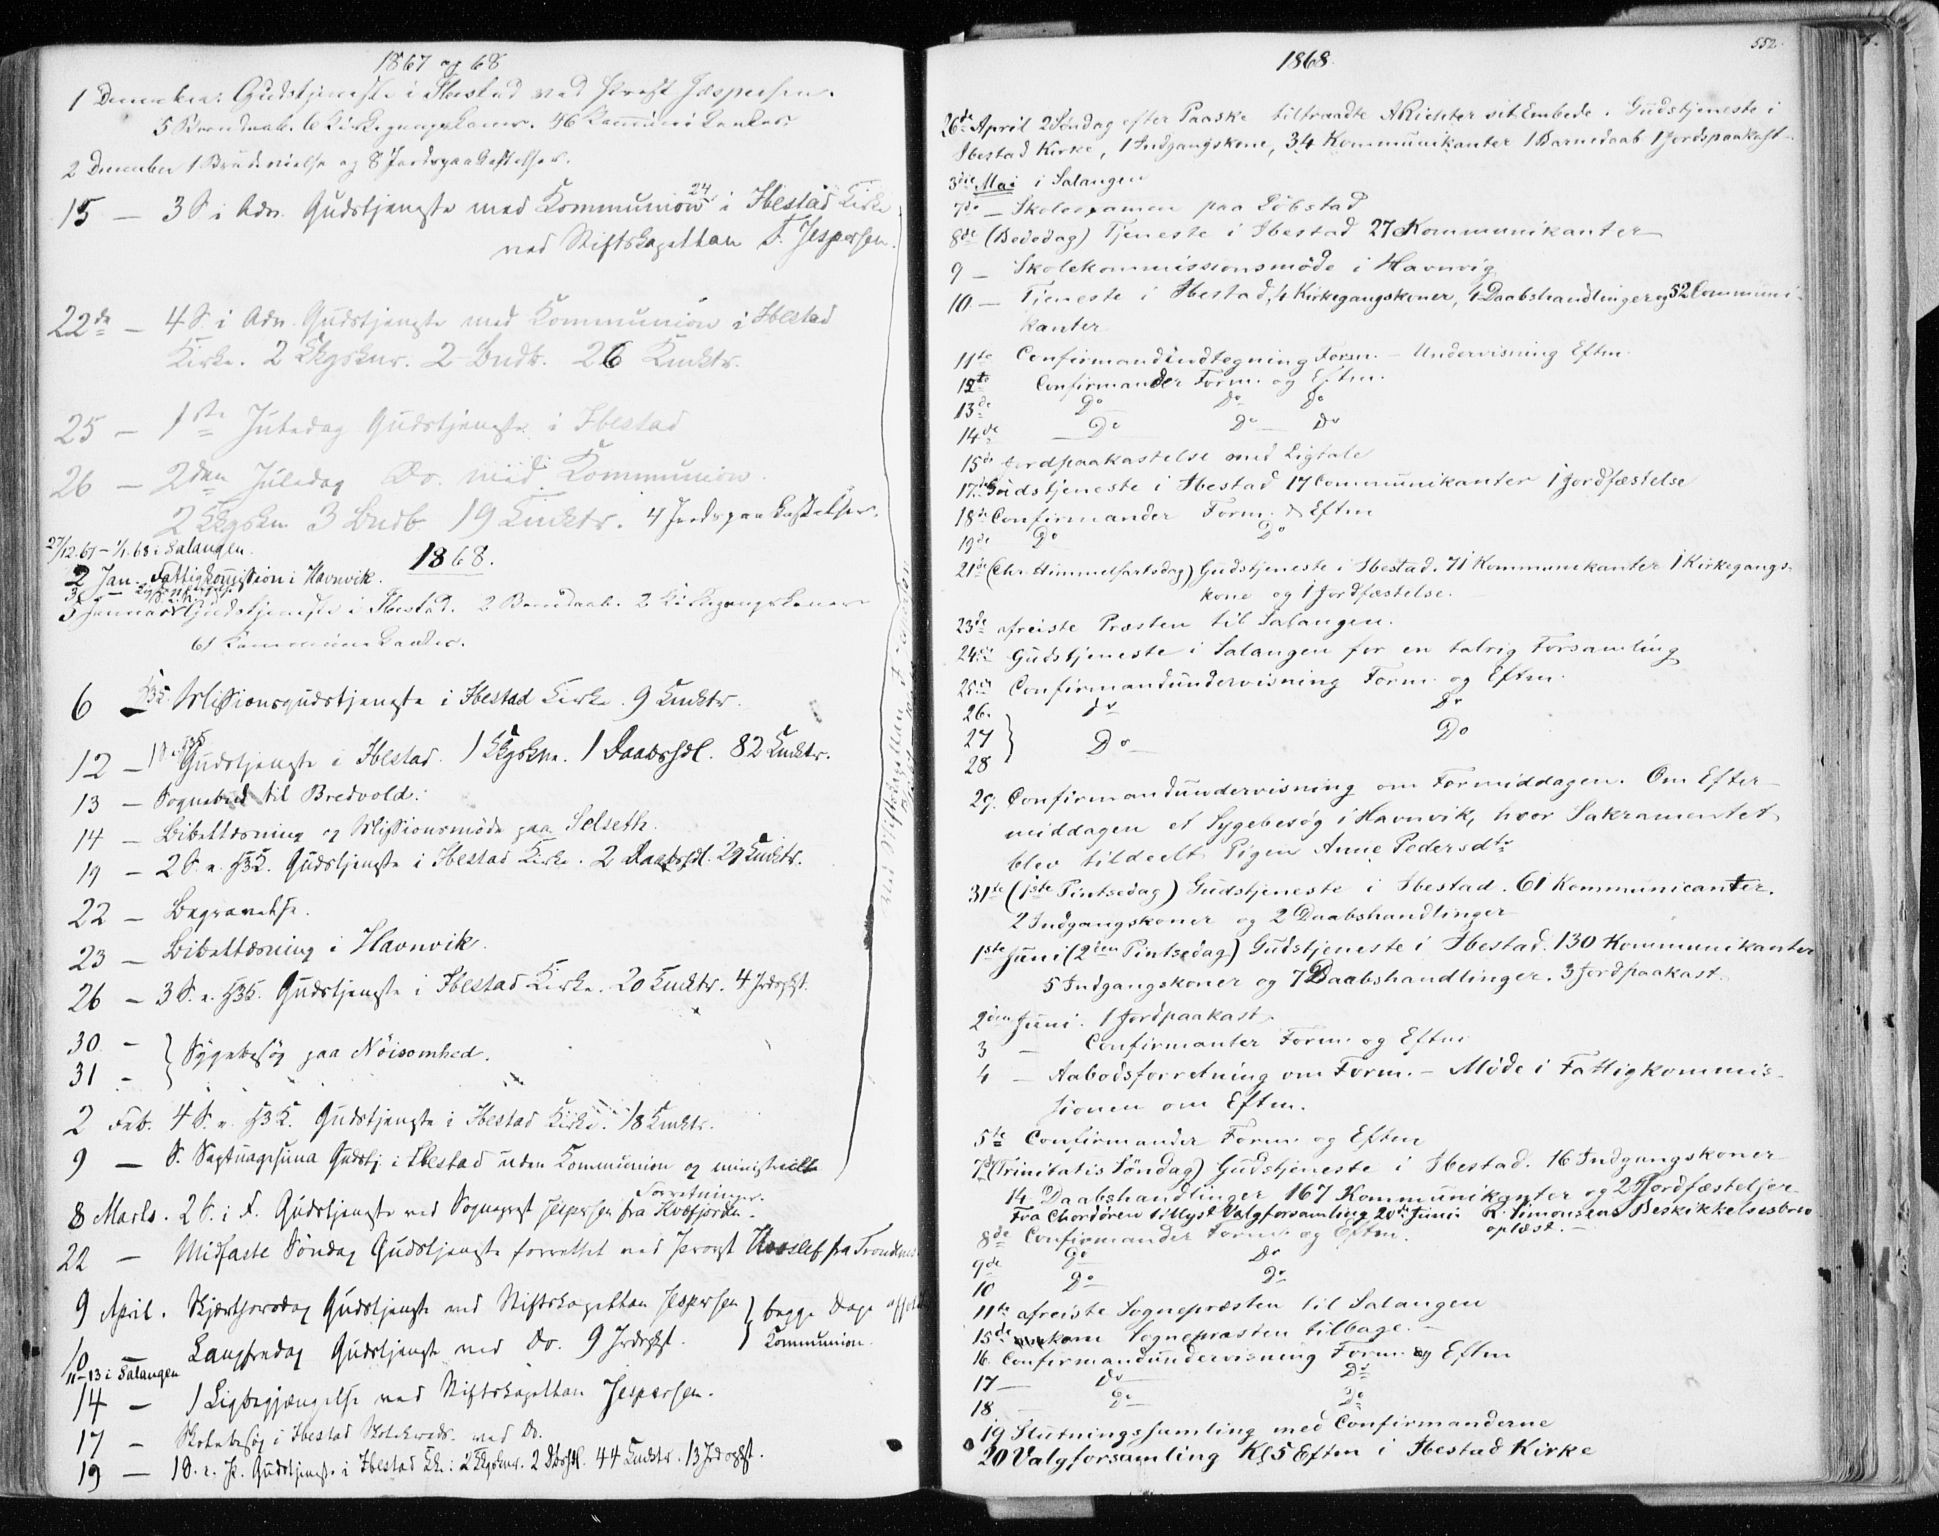 1867 og 68
1 December: Gudstjeneste i Ibestad ved Provst Jespersen.
5 Barnedaab. 6 Kirkegangskoner. 46 Kommunikanter
2 December 1 Brudevielse og 8 Jordpaakastelser.
15 — 3 S. i Adv. Gudstjeneste med Kommunion 24 i Ibestad Kirke
ved Stiftskapellan F. Jespersen.
22de — 4 S. i Adv. Gudstjeneste med Kommunion i Ibestad
Kirke. 2 Kkgsknr. 2 Bndb. 26 Kmktr.
25 — 1ste Juledag Gudstjeneste i Ibestad
26 — 2den Juledag Do. med Kommunion.
2 Kkgskn 3 Bndb 19 Kmktr. 4 Jordpaakastelser.
27/12.67 – 1/1.68 i Salangen.
1868.
2 Jan. Fattigkommission i Havnvik.
5 Januar Gudstjeneste i Ibestad. 2 Barnedaab. 2 Kirkegangskoner
61 Kommunikanter.
6 — H3K. Missionsgudstjeneste i Ibestad Kirke. 9 Kmktr.
12 — Gudstjeneste i Ibestad. 1 Kkgskne. 1 Daabshdl. 82 Kmktr.
13 — Sognebud til Bredvold.
14 — Bibellæsning og Missionsmøde paa Selseth.
19 — 2 S. e. H3K. Gudstjeneste i Ibestad Kirke. 2 Daabshdl. 29 Kmktr.
22 — Begravelse.
23 — Bibellæsning i Havnvik.
26 — 3 S. e. H3K. Gudstjeneste i Ibestad Kirke. 20 Kmktr. 4 Jrdpkst.
30 —
31 — } Sygebesøg paa Nöisomhed.
2 Feb. 4 S. e. H3K. Gudstjeneste i Ibestad Kirke. 18 Kmktr.
9 — S. Septuagesima Gudstj i Ibestad uden Kommunion og ministrielle
Forretninger.
8 Marts. 2 S. i F. Gudstjeneste ved Sogneprest Jespersen fra Kvæfjorden.
22 — Midfaste Søndag Gudstjeneste forrettet ved Provst fra Trondenes
9 April. Skjærthorsdag Gudstjeneste ved Stiftskapellan Jespersen } begge Dage
10 — Langfredag Gudstjeneste ved Do. 9 Jrdpkst. } Kommunion.
11–13 i Salangen
14 — 1 Ligbegjængelse ved Stiftskapellan Jespersen.
17 — Skolebesøg i Ibestad ved Do.
19 — 1 S. e. P. Gudstjeneste i Ibestad Kk: 2 Kkgsknr. 2 Dbshdl. 44 Kmktr. 13 Jrdpkst.
552.
1868.
26de April 2 Søndag efter Paaske tiltraadte A Richter sit Embede. Gudstjeneste i
Ibestad Kirke, 1 Indgangskone, 34 Kommunikanter 1 Barnedaab 1 Jordpaakast–
3die Mai i Salangen
7de — Skoleexamen paa Løbstad
8de (Bededag) Tjeneste i Ibestad 27 Kommunikanter
9 — Skolekommissionsmøde i Havnvig
10 — Tjeneste i Ibestad, 4 Kirkegangskoner, 4 Daabshandlinger og 52 Communi-
kanter
11te Confirmandindtegning Form. – Undervisning Eftm.
12te Confirmander Form. og Eftm.
13de Do Do Do
14de Do Do Do
15de Jordpaakastelse med Ligtale
17de Gudstjeneste i Ibestad 17 Communikanter 1 Jordfæstelse
18de Confirmander Form. & Eftm
19de Do Do
21de (Chr. Himmelfartsdag) Gudstjeneste i Ibestad. 71 Kommunikanter 1 Kirkegangs-
kone og 1 Jordfæstelse.
23de afreiste Præsten til Salangen.
24de Gudstjeneste i Salangen for en talrig Forsamling
25de Confirmandundervisning Form. og Eftm.
26. Do Do
27 } Do Do
28
29. Confirmandundervisning om Formiddagen. Om Efter-
middagen et Sygebesøg i Havnvik, hvor Sakramentet
blev tildeelt Pigen Anne Pedersdtr
31te (1ste Pintsedag) Gudstjeneste i Ibestad. 61 Kommunicanter.
2 Indgangskoner og 2 Daabshandlinger
1ste Juni (2den Pintsedag) Gudstjeneste i Ibestad. 130 Kommunikanter
5 Indgangskoner og 7 Daabshandlinger. 3 Jordpaakast.
2den Juni. 1 Jordpaakast.
3 — Confirmanter Form. og Eftm
4 — Aabodsforretning om Form. – Møde i Fattigkommis-
sionen om Eftm.
5te Confirmander Form. og Eftm
7de (Trinitatis Søndag) Gudstjeneste i Ibestad. 16 Indgangskoner
14 Daabshandlinger 167 Kommunikanter og 2 Jordfæstelser
Fra Chordøren tillyst Valgforsamling 20de Juni. R. Simonsens Beskikkelsesbrev
oplæst. –
8de Confirmander Form. og Eftm.
9de Do Do
10 Do Do
11te afreiste Sognepræsten til Salangen
15de ankom Sognepræsten tilbage. –
16. Confirmandundervisning Form. og Eftm
17 — Do Do
18 — Do Do
19 Slutningssamling med Confirmanderne
20 Valgforsamling Kl 5 Eftm i Ibestad Kirke